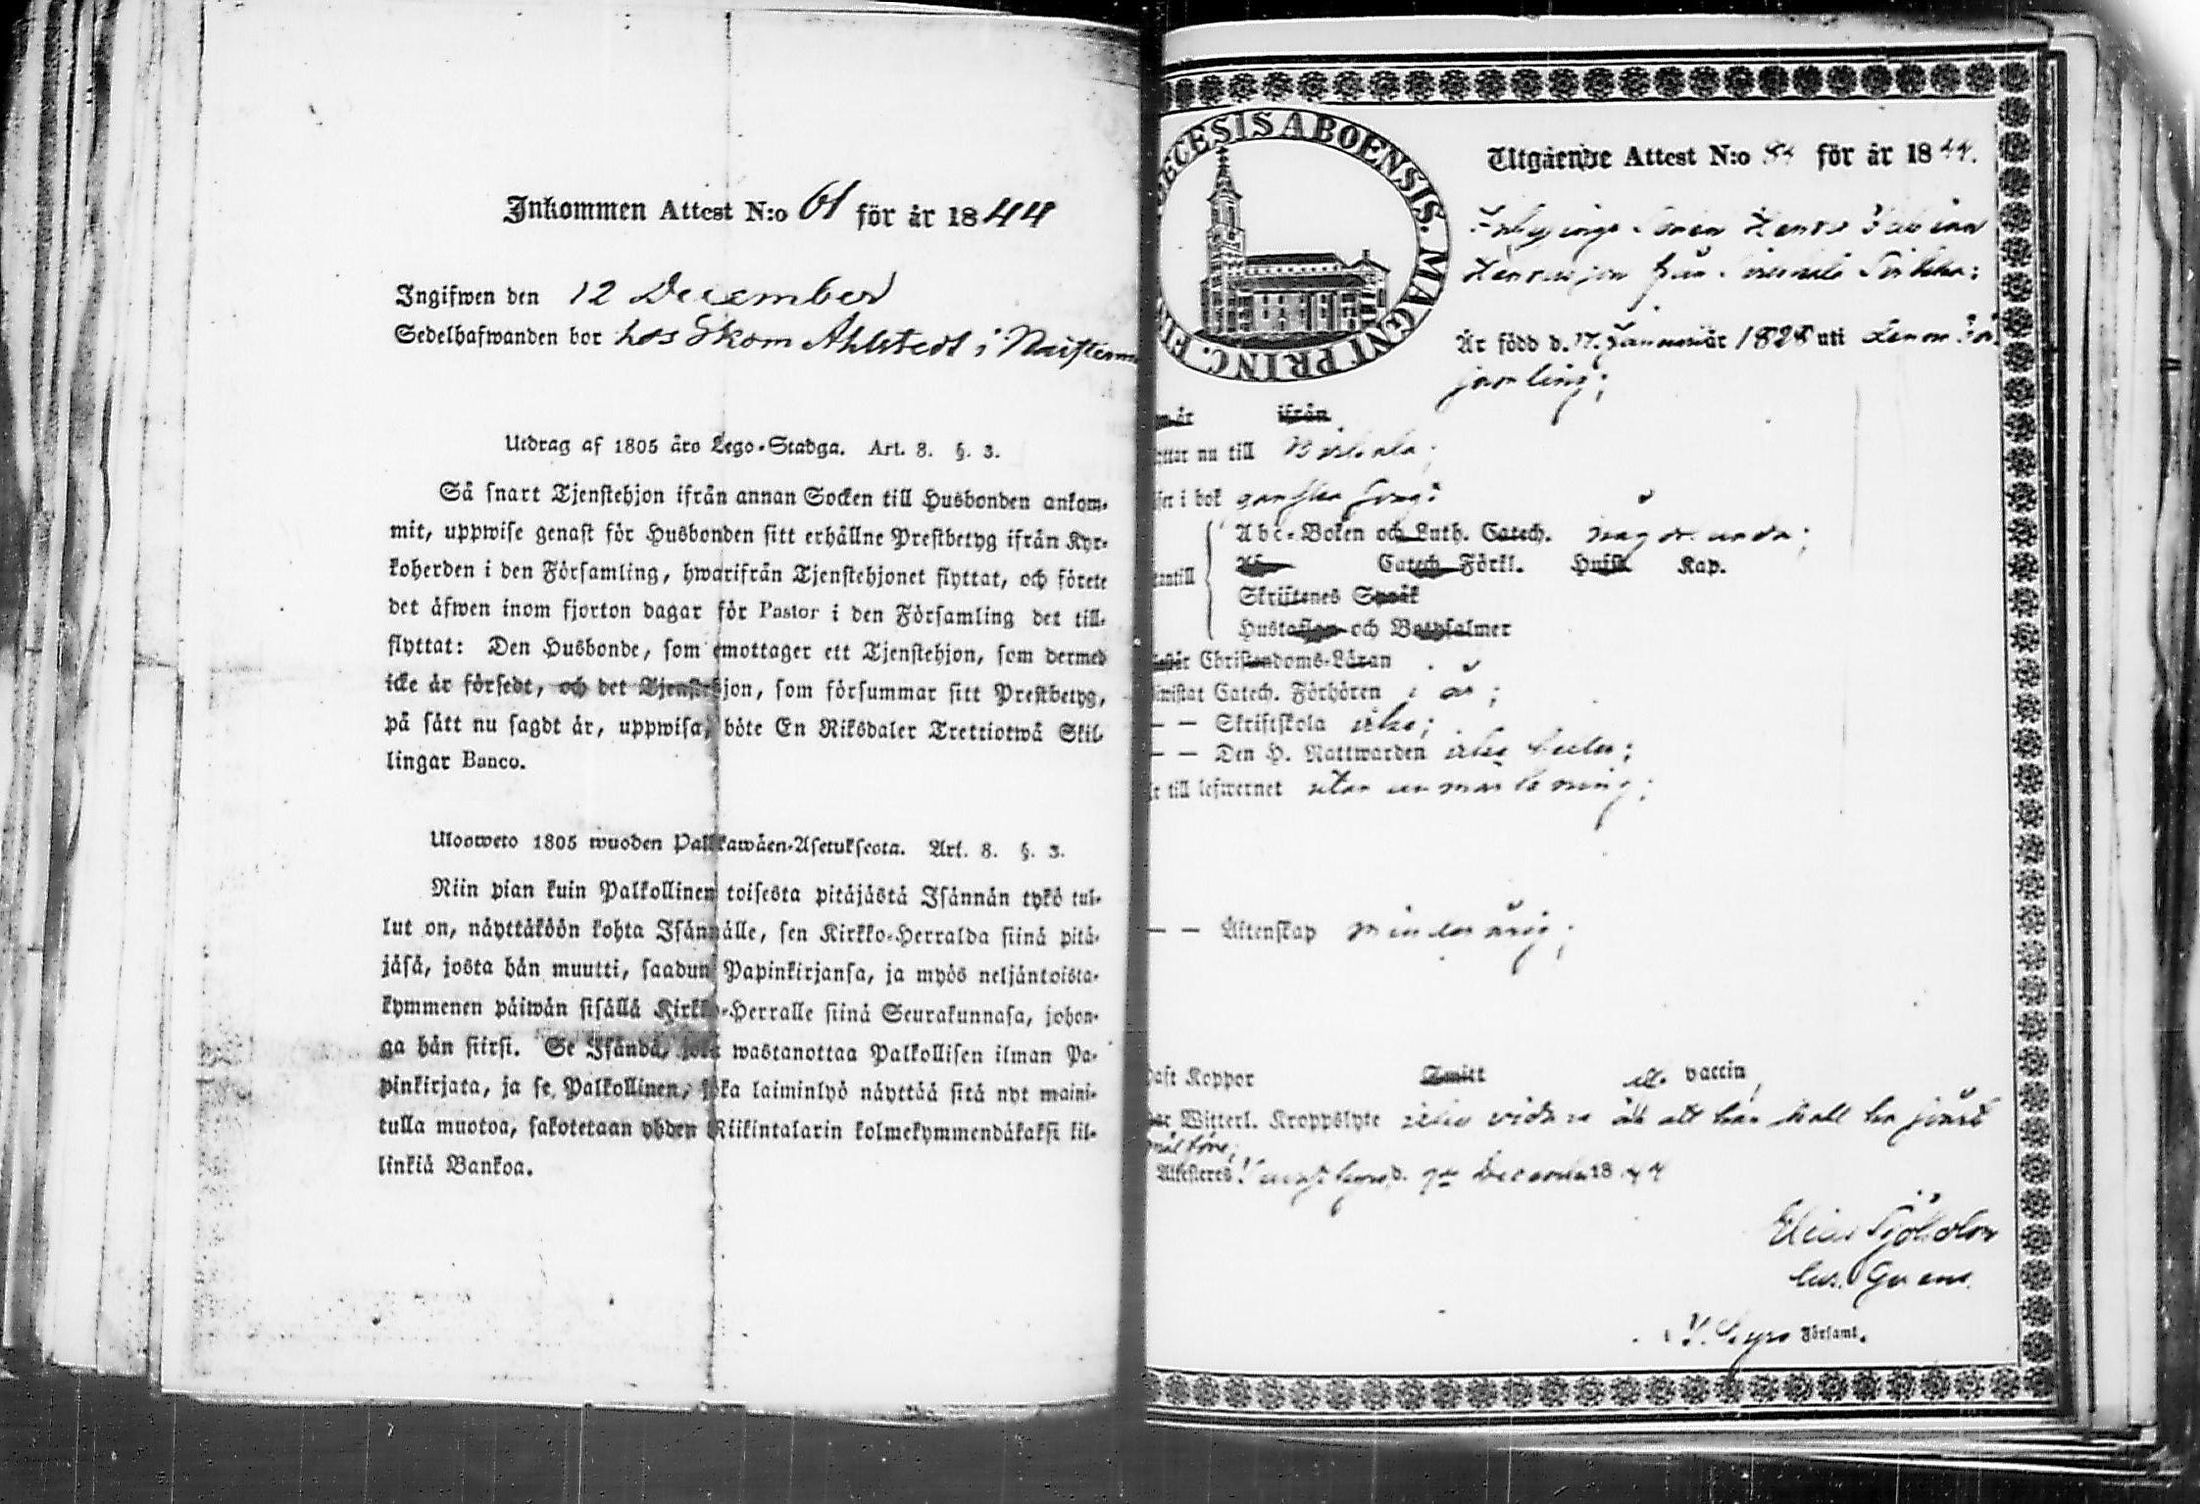 Inkommen Attest N:o 61 för år 1844
Ingifwen den 12 December
Sedelhafwanden bor hos Skom Ahlstedt i
Utdrag af 1805 års Lego-Stadga. Art. 8. §. 3.
Så snart Tjenstehjon ifrån annan Socken till Husbonden ankom-
mit, uppwise genast för Husbonden sitt erhållne Prestbetyg ifrån Kyr-
koherden i den Församling, hwarifrån Tjenstehjonet flyttat, och förete
det åfwen inom fjorton dagar för Pastor i den Församling det till-
flyttat: Den Husbonde, som emottager ett Tjenstehjon, som dermed
icke är försedt, och det Tjenstehjon, som försummar sitt Prestbetyg,
på sätt nu sagdt är, uppwisa, böte En Riksdaler Trettiotwå Skil-
lingar Banco.
Ulosweto 1805 wuoden Palkkawäen-Asetuksesta. Art. 8. §. 3.
Niin pian kuin Palkollinen toisesta pitäjästä Isännän tykö tul-
lut on, näyttäköön kohta Isännälle, sen Kirkko-Herralda siinä pitä-
jäsä, josta hän muutti, saadun Papinkirjansa, ja myös neljäntoista-
kymmenen päiwän sisällä Kirkko-Herralle siinä Seurakunnasa, johon-
ga hän siirsi. Se Isändä, joka wastanottaa Palkollisen ilman Pa-
pinkirjata, ja se Palkollinen, joka laiminlyö näyttää sitä nyt maini-
tulla muotoa, sakotetaan yhden Riikintalarin kolmekymmendäkaksi kil-
linkiä Bankoa.
ECESIS ABOENSIS. MAGNI PRINC. FI
Utgående Attest N:o för år 1844.
Henrik Fabian
Henriksson från
Är född d. 17. Januari år 1828 uti Lemo För
samling;
år ifrån
ttar nu till
ser i bok ganska svag;
Abc-Boken och Luth. Catech. någorlunda;
Catech Förkl. Hufst. Kap.
antill
Skriftenes Språk
Hustaflan och Botpsalmer
står Christendoms-Läran
iwistat Catech. Förhören i år;
— — Skriftskola icke;
— — Den H. Nattwarden icke heller;
r till lefwernet utan anmärkning;
— — Äktenskap minderårig;
haft Koppor Smitt el. vaccin,
ar Witterl. Kroppslyte icke vidare än att han skall ha
målföre;
Attesteres: d. 7de December 1844
Elias Sjöholm
Församl.